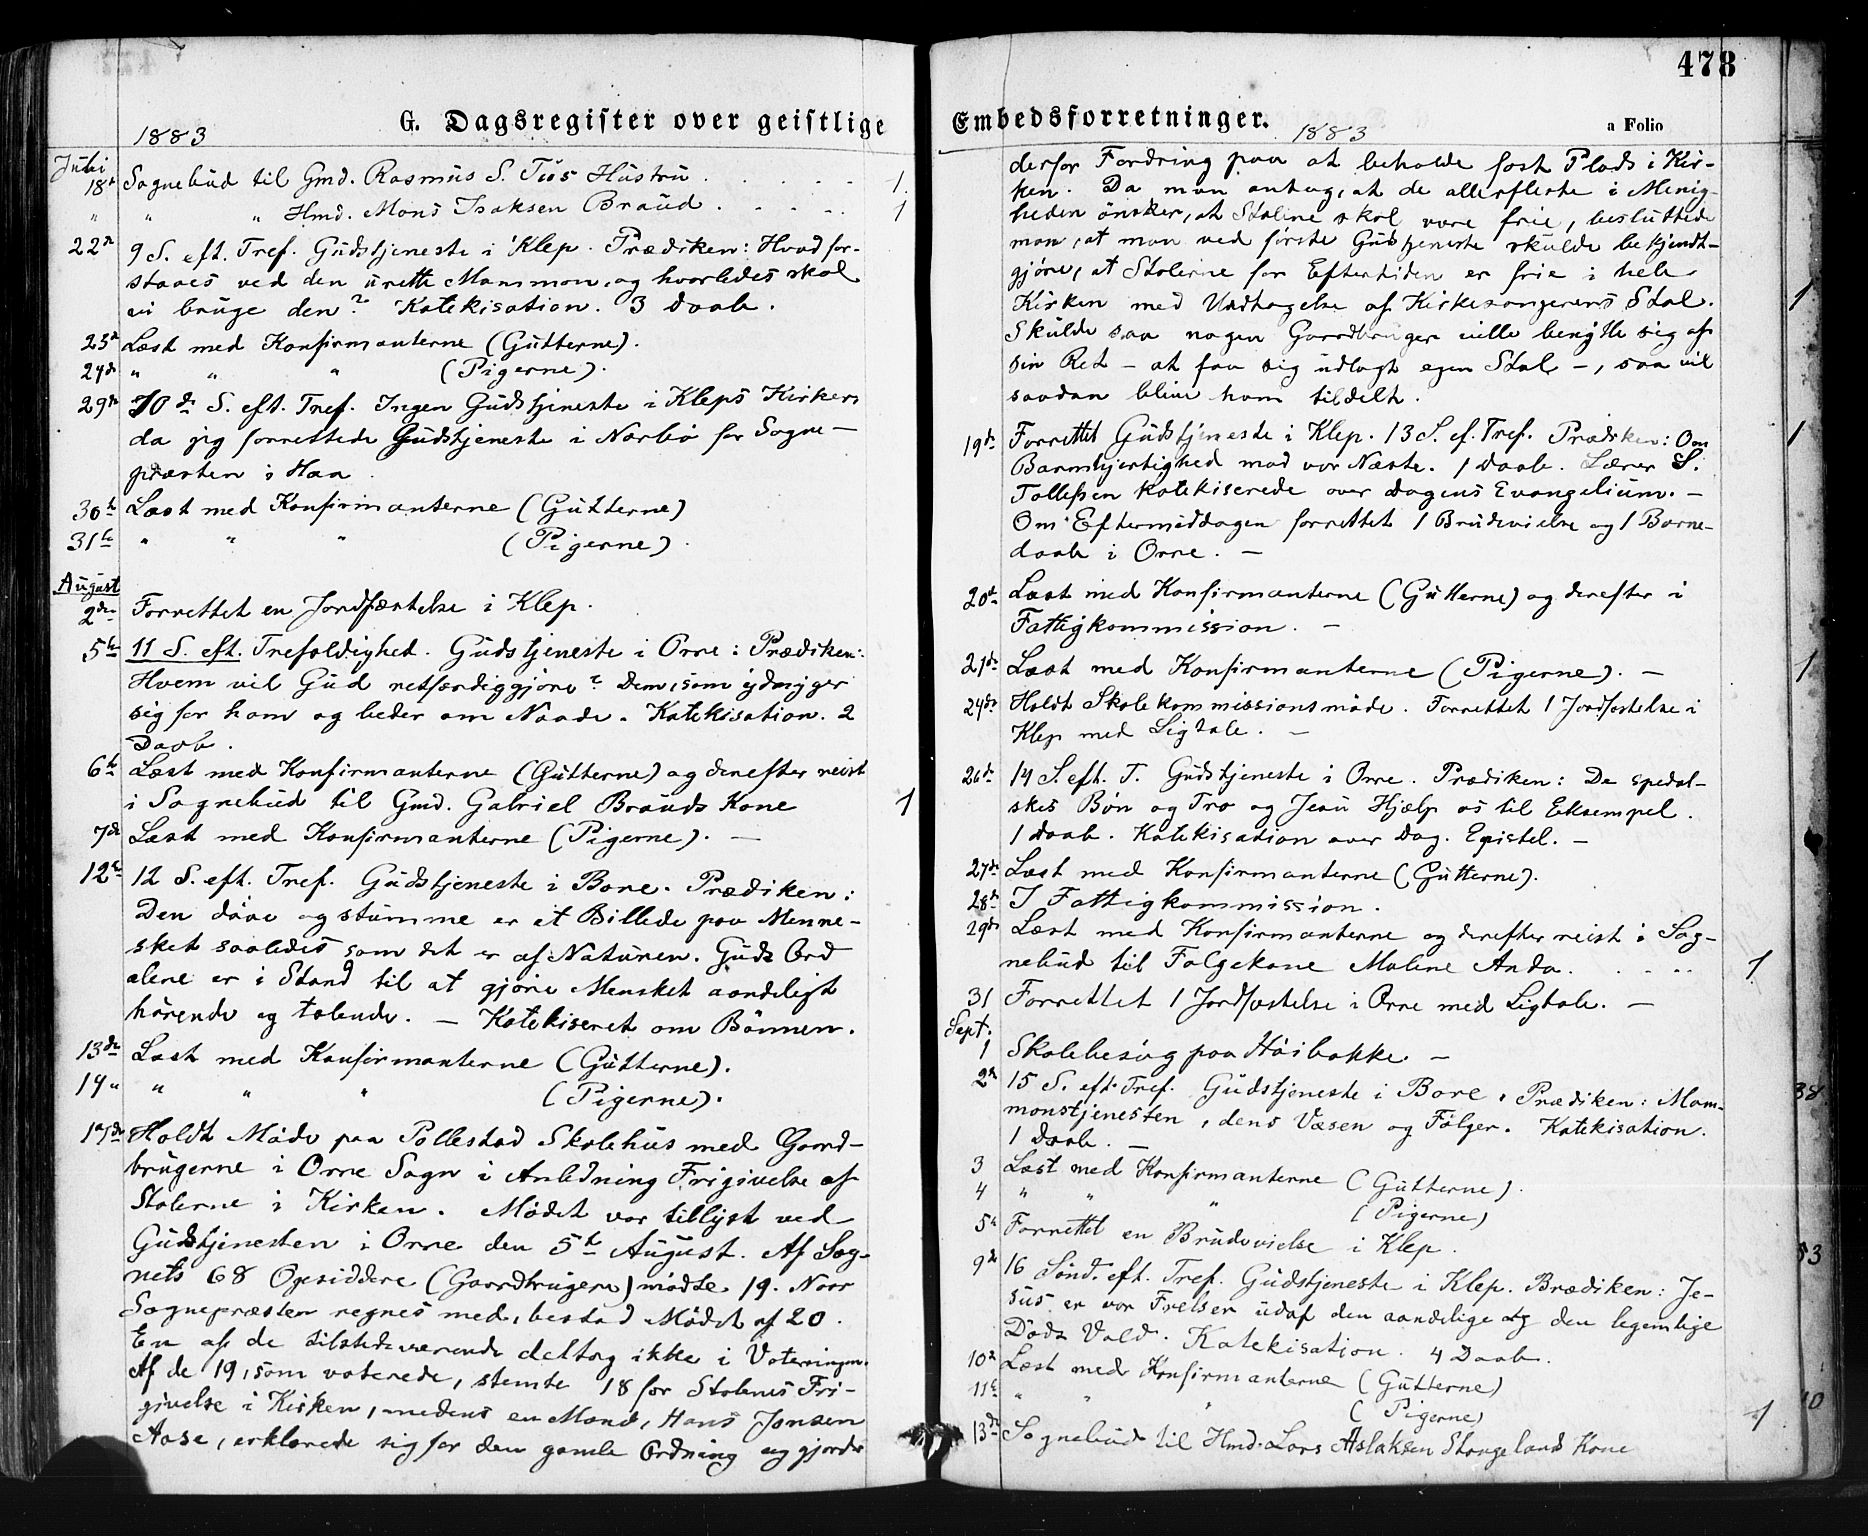 478
G. Dagsregister over geistlige Embedsforretninger.
1883
Juli
18de Sognebud til Gmd. Rasmus S. Tus Hustru . . . . . 1
" " " Hmd. Mons Isaksen Braud . . . . . 1
22de 9 S. eft. Tref. Gudstjeneste i Klep. Prædiken: Hvad for-
staaes ved den urette Mammon, og hvorledes skal
vi bruge den? Katekisation. 3 Daab.
23de Læst med Konfirmanterne (Gutterne).
24de " " " (Pigerne).
29de 10de S. eft. Tref. Ingen Gudstjeneste i Kleps Kirker
da jeg forrettede Gudstjeneste i Nærbø for Sogne-
præsten i Haa.
30te Læst med Konfirmanterne (Gutterne)
31te " " " (Pigerne).
August
2den Forrettet en Jordfæstelse i Klep.
5te 11 S. eft. Trefoldighed. Gudstjeneste i Orre: Prædiken:
Hvem vil Gud retfærdiggjøre? Dem, som ydmyger
sig for ham og beder om Naade. Katekisation. 2
Daab.
6te Læst med Konfirmanterne (Gutterne) og derefter reist
i Sognebud til Gmd. Gabriel Brauds Kone 1
7de Læst med Konfirmanterne (Pigerne). —
12te 12 S. eft. Tref. Gudstjeneste i Bore. Prædiken:
Den døve og stumme er et Billede paa Menne-
sket saaledes som det er af Naturen. Guds Ord
alene er i Stand til at gjøre Mensket aandeligt
hørende og talende. — Katekiseret om Bønnen.
13de Læst med Konfirmanterne (Gutterne).
14 " " " " (Pigerne).
17de Holdt Møde paa Pollestad Skolehus med Gaard-
brugerne i Orre Sogn i Anledning Frigivelse af
Stolerne i Kirken. Mødet var tillyst ved
Gudstjenesten i Orre den 5te August. Af Sog-
nets 68 Opsiddere (Gaardbrugere) mødte 19. Naar
Sognepræsten regnes med, bestod Mødet af 20.
En af de tilstedeværende deltog ikke i Voteringen.
Af de 19, som voterede, stemte 18 for Stolenes Fri-
givelse i Kirken, medens en Mand, Hans Jonsen
Aase, erklærede sig for den gamle Ordning og gjorde
1883
a Folio
derfor Fordring paa at beholde fast Plads i Kir-
ken. Da man antog, at de allerfleste i Menig-
heden ønsker, at Stolene skal være frie, besluttede
man, at man ved første Gudstjeneste skulde bekjendt-
gjøre, at Stolerne for Eftertiden er frie i hele
Kirken med Undtagelse af Kirkesangerens Stol. 1
Skulde saa nogen Gaardbruger ville benytte sig af
sin Ret – at faa sig udlagt egen Stol –, saa vil
saadan blive ham tildelt.
19de Forrettet Gudstjeneste i Klep. 13 S. ef. Tref. Prædiken: Om 1
Barmhjertighed mod vor Næste. 1 Daab. Lærer S.
Tollefsen katekiserede over Dagens Evangelium. —
Om Eftermiddagen forrettet 1 Brudevielse og 1 Barne-
daab i Orre. —
20de Læst med Konfirmanterne (Gutterne) og derefter i
Fattigkommission. —
21de Læst med Konfirmanterne (Pigerne). — 1
24de Holdt Skolekommissionsmøde. Forrettet 1 Jordfæstelse i
Klep med Ligtale. —
26de 14 S. eft. T. Gudstjeneste i Orre. Prædiken: De spedal-
skes Bøn og Tro og Jesu Hjælp os til Eksempel.
1 Daab. Katekisation over Dag. Epistel. —
27de Læst med Konfirmanterne (Gutterne).
28de I Fattigkommission.
29de Læst med Konfirmanterne og derefter reist i Sog-
nebud til Folgekone Malene Anda. . . . . 1
31 Forrettet 1 Jordfæstelse i Orre med Ligtale. —
Sept.
1 Skolebesøg paa Høibakke. —
2de 15 S. eft. Tref. Gudstjeneste i Bore. Prædiken: Mam- 38
monstjenesten, dens Væsen og Følger. Katekisation.
1 Daab. —
3 Læst med Konfirmanterne (Gutterne).
4 " " " (Pigerne)
5te Forrettet en Brudevielse i Klep.
9de 16 Sønd. eft. Tref. Gudstjeneste i Klep. Prædiken: Je- 53
sus er vor Frelser udaf den aandelige og den legemlige
Døds Vold. Katekisation. 4 Daab.
10de Læst med Konfirmanterne (Gutterne)
11te " " " (Pigerne) 10
13de Sognebud til Hmd. Lars Aslaksen Stangelands Kone 1